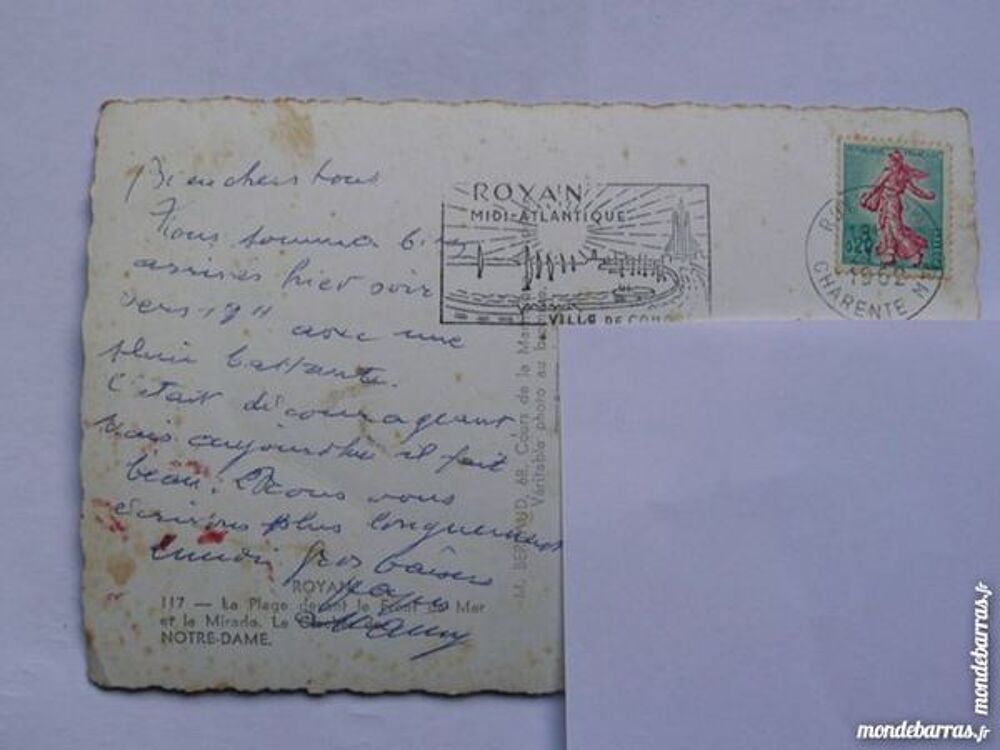 Bien chers tous
Nous sommes bien
arrivés hier soir
vers 19 H avec une
pluie battante.
C'était décourageant
mais aujourdhui il fait
beau. Nous vous
écrirons plus longuement
gros baisers
Papy
Mamy
ROYAN
MIDI-ATLANTIQUE
VILLE DE CON
1962
CHARENTE M
M. BERNAUD, 68, Cours de la Ma
Véritable photo au b
ROYAN
117 — La Plage devant le Front de Mer
et le Mirado. La
NOTRE-DAME.
mondebarras.fr
mondebarras.fr